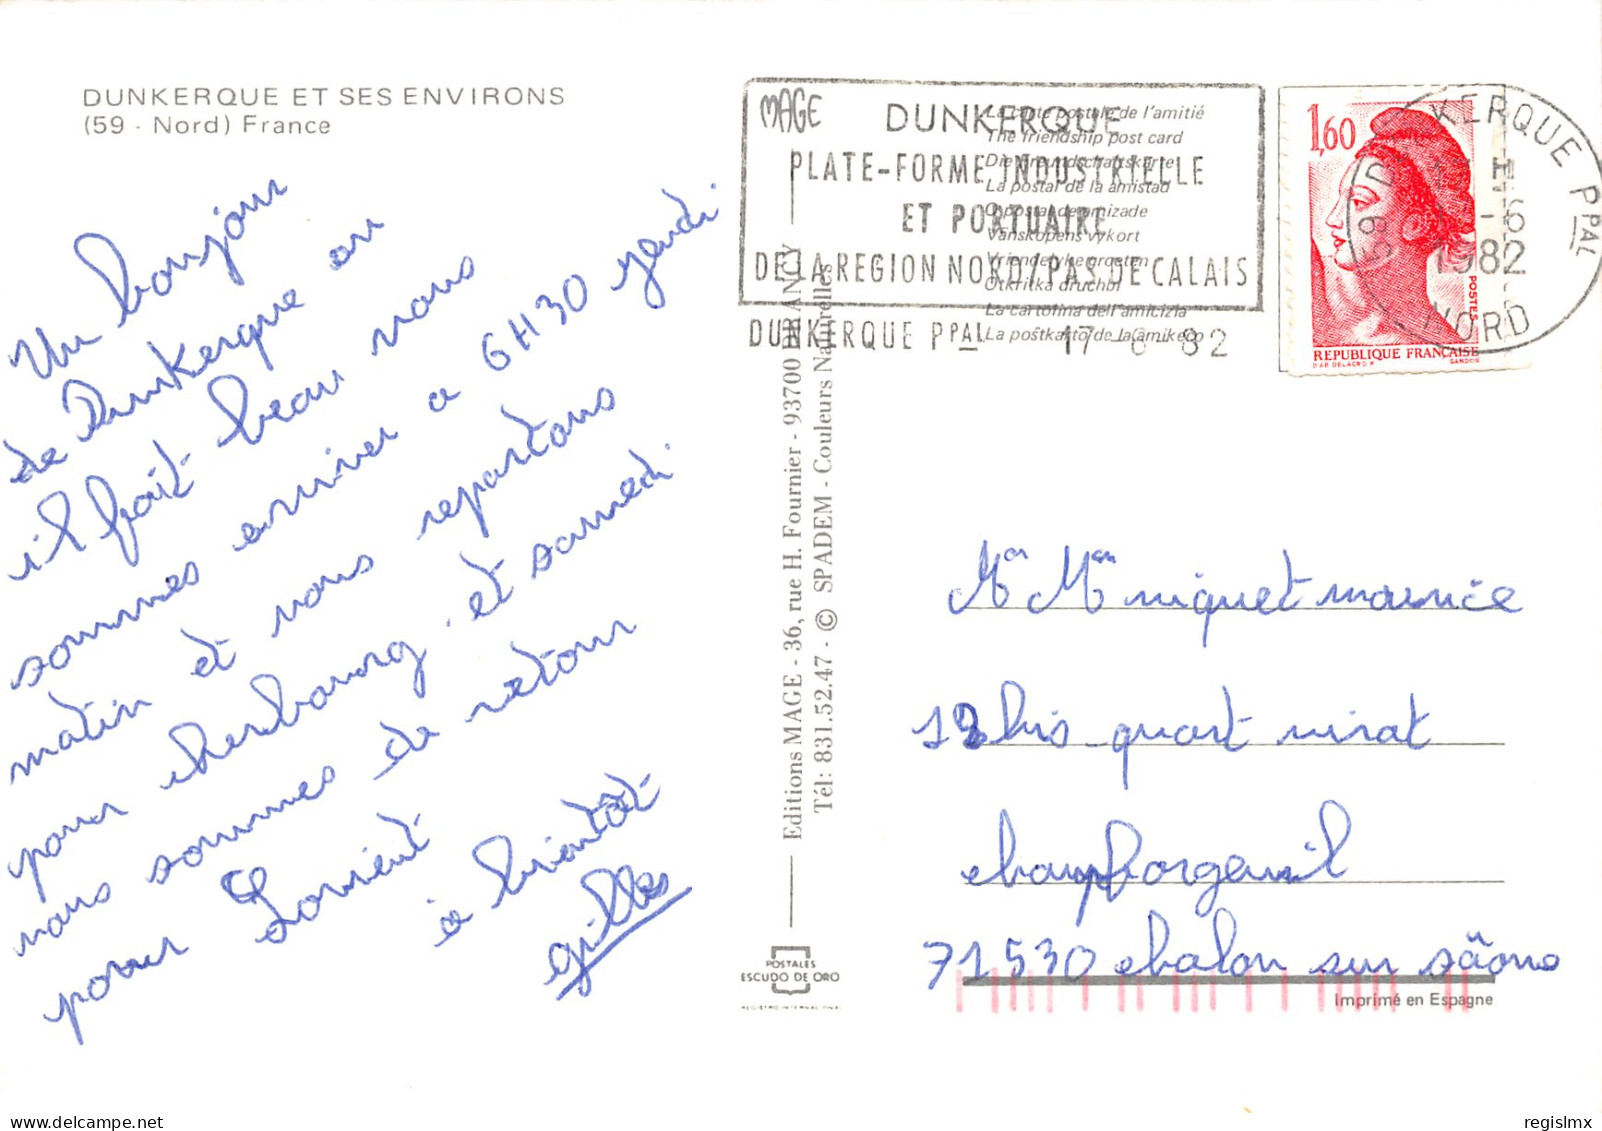 DUNKERQUE ET SES ENVIRONS
(59 - Nord) France
Un bonjour
de Dunkerque ou
il fait beau nous
sommes arriver a 6H30 jeudi
matin et nous repartons
pour cherbourg. et samedi
nous sommes de retour
pour Lorient
à bientôt
gilles
MAGE
DUNKERQUE
PLATE-FORME INDUSTRIELLE
ET PORTUAIRE
DE LA REGION NORD/PAS DE CALAIS
DUNKERQUE PPAL 17-6-82
La carte postale de l'amitié
The friendship post card
Die Freundschaftskarte
La postal de la amistad
O postal de amizade
Vanskapens vykort
Vriendelyke groeten
Otkritka druchbi
La cartolina dell'amicizia
La postkarto de la amikeco
1,60
POSTES
REPUBLIQUE FRANÇAISE
D'AP. DELACROIX GANDON
59 DUNKERQUE PPAL
-6
1982
NORD
Editions MAGE - 36, rue H. Fournier - 93700 DRANCY
Tél: 831.52.47 - © SPADEM - Couleurs Naturelles
Mr Mme niquet maurice
12 bis quart virat
champforgeuil
71530 chalon sur sâone
POSTALES
ESCUDO DE ORO
REGISTRO INTERNACIONAL
Imprimé en Espagne
regislmx